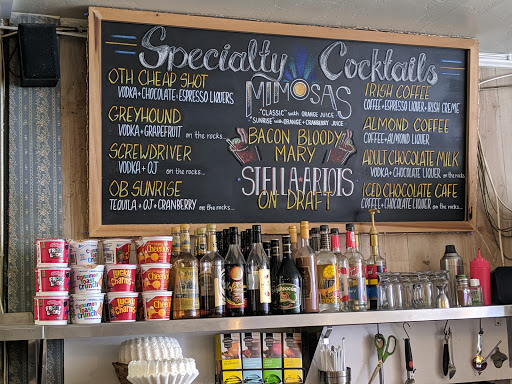 Specialty Cocktails
OTH CHEAP SHOT
VODKA + CHOCOLATE + ESPRESSO LIQUERS
GREYHOUND
VODKA + GRAPEFRUIT on the rocks...
SCREWDRIVER
VODKA + OJ on the rocks...
OB SUNRISE
TEQUILA + OJ + CRANBERRY on the rocks...
MIMOSAS
"CLASSIC" with ORANGE JUICE
"SUNRISE" with ORANGE + CRANBERRY JUICE
BACON BLOODY
MARY
STELLA ARTOIS
ON DRAFT
IRISH COFFEE
COFFEE + ESPRESSO LIQUER + IRISH CREME
ALMOND COFFEE
COFFEE + ALMOND LIQUER
ADULT CHOCOLATE MILK
VODKA + CHOCOLATE LIQUER on the rocks...
ICED CHOCOLATE CAFE
COFFEE + CHOCOLATE LIQUER on the rocks...
Cheerios
LUCKY
CHARMS